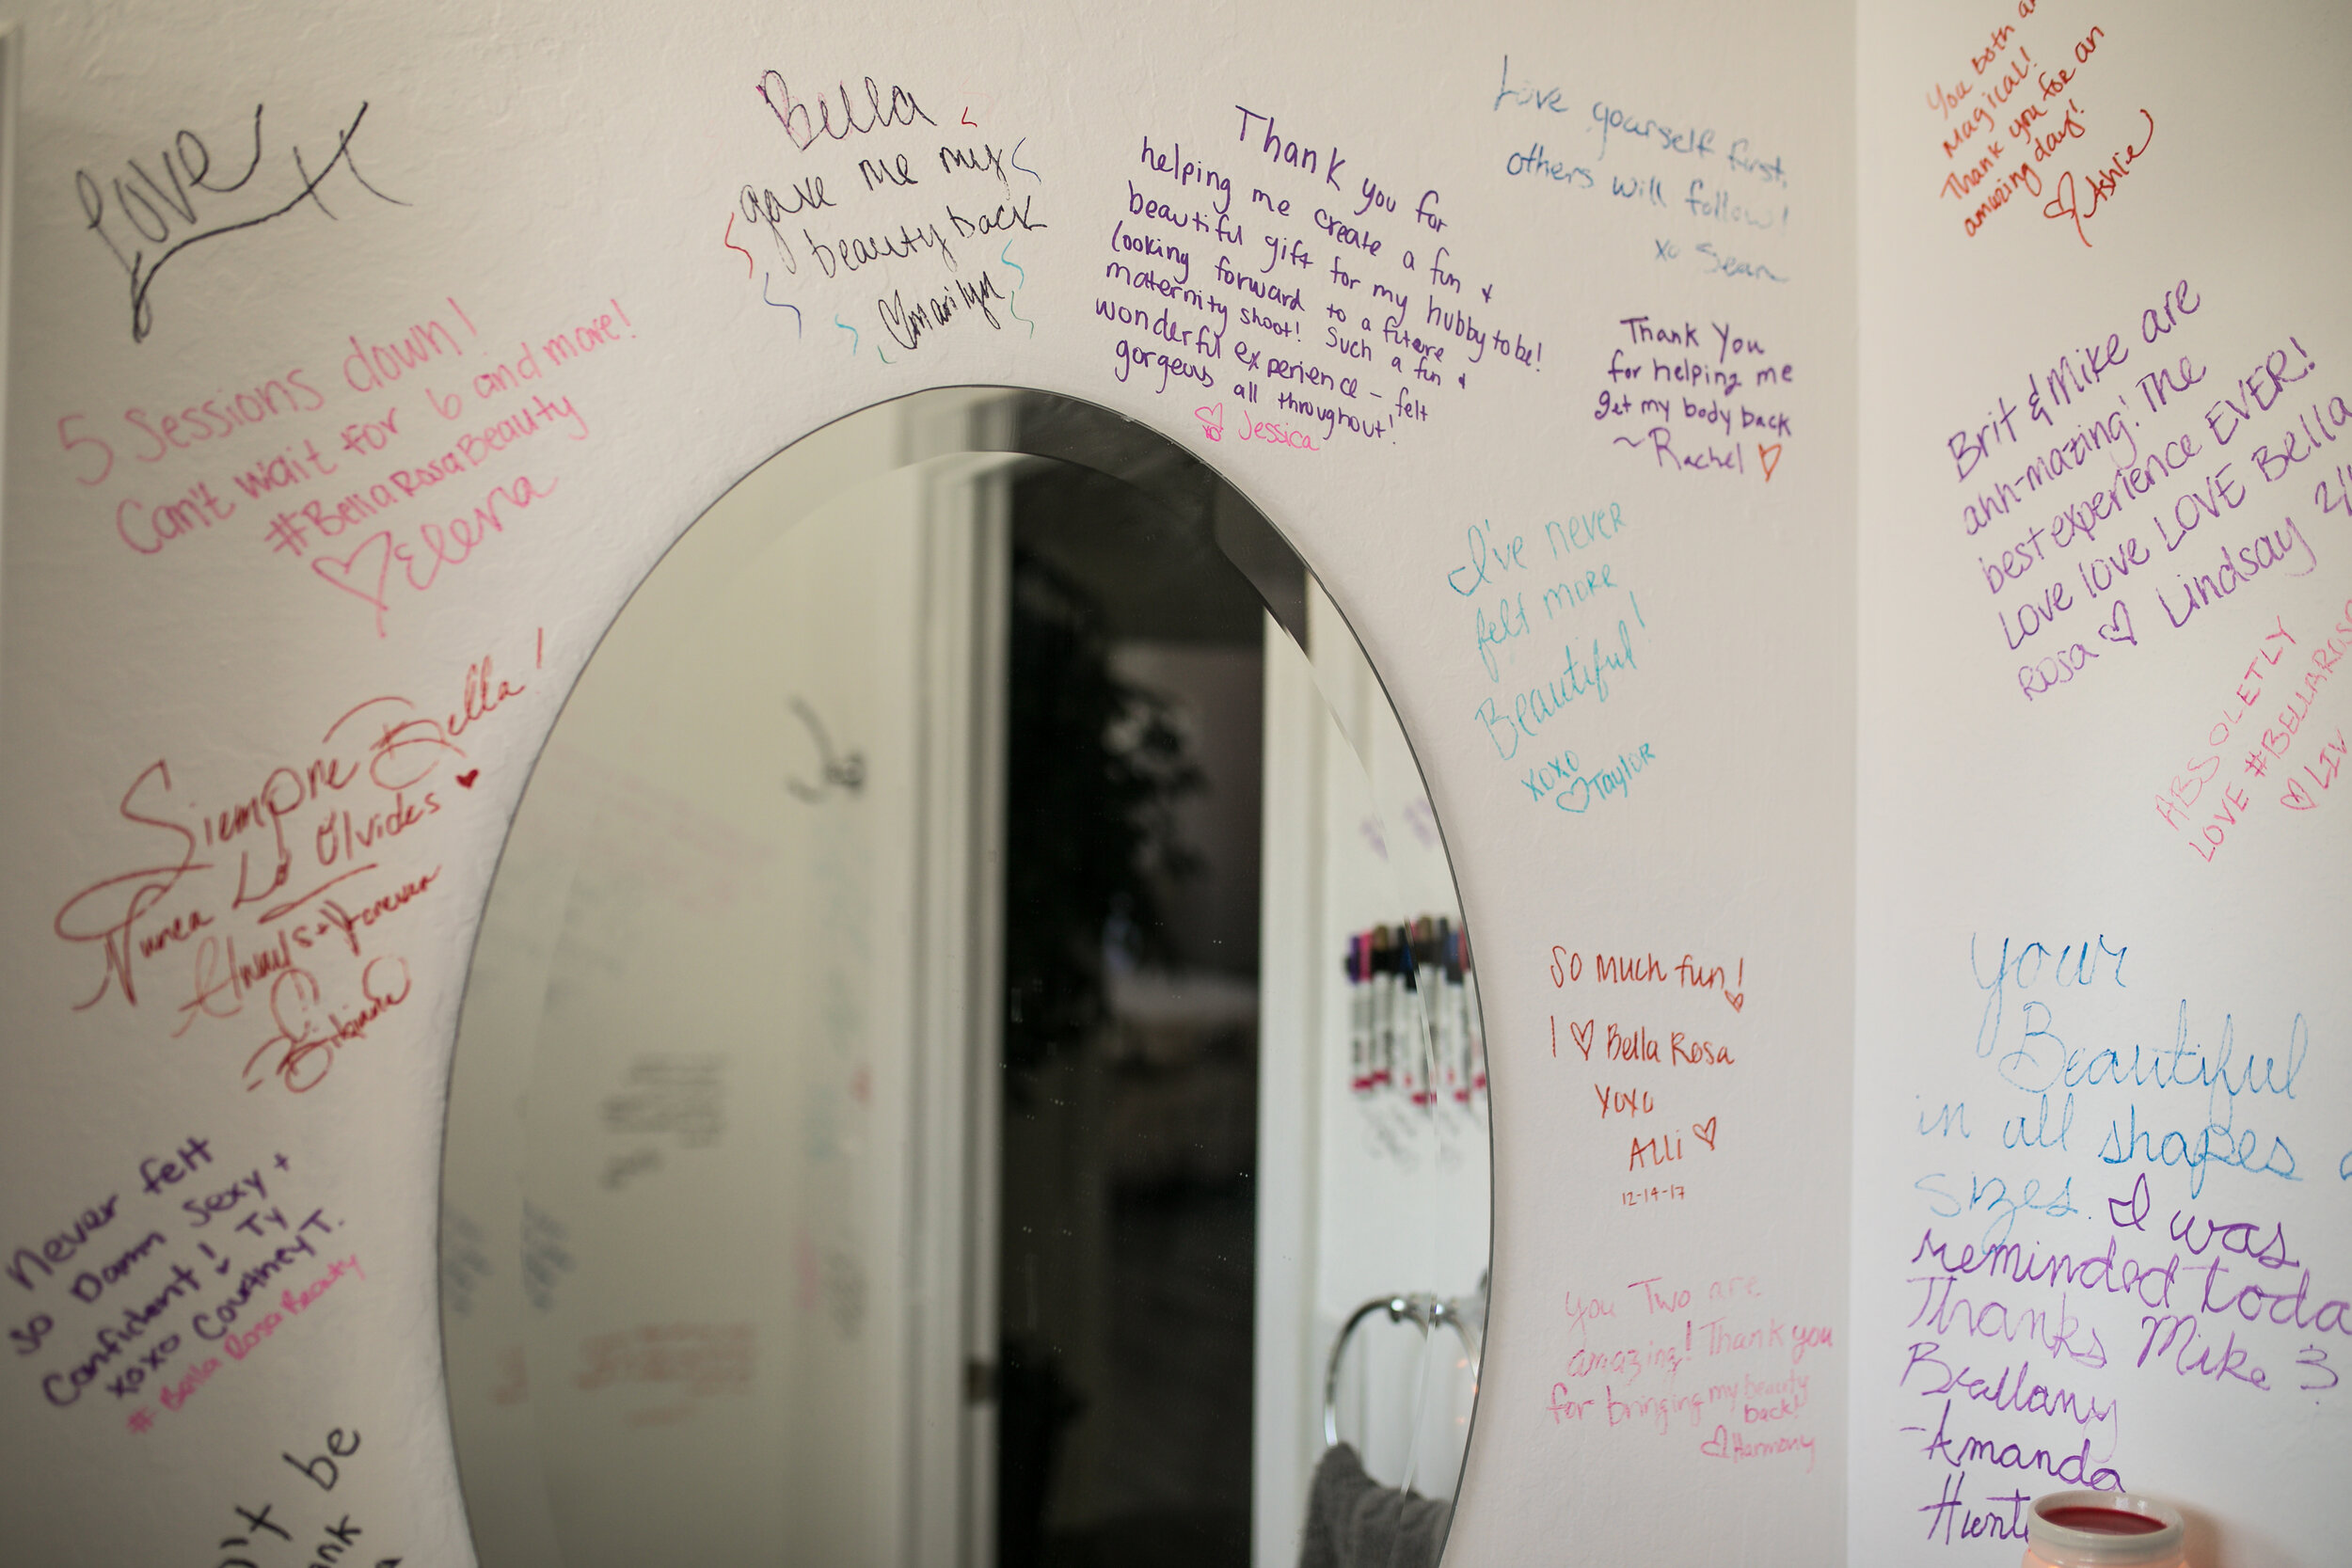 Love
5 Sessions down!
Can't wait for 6 and more!
#BellaRosaBeauty
Elena
Siempre Bella!
Nunca Lo Olvides
Always + Forever
- Bibiana
Never felt
so Damn Sexy +
Confident! Ty
xoxo Courtney T.
# Bella Rosa Beauty
be
Bella
gave me my
beauty back
Marilyn
Thank you for
helping me create a fun &
beautiful gift for my hubby to be!
looking forward to a future
maternity shoot! Such a fun &
wonderful experience - felt
gorgeous all throughout!
xo Jessica
Love yourself first,
others will follow!
xo Sean
Thank You
for helping me
get my body back
~Rachel
I've never
felt more
Beautiful!
xoxo
Taylor
So much fun!
I Bella Rosa
xoxo
Alli
12-14-17
you Two are
amazing! Thank you
for bringing my beauty
back!
Harmony
You both
Magical!
Thank you for an
amazing day!
Ashlie
Brit & Mike are
ahh-mazing! The
best experience EVER!
Love love LOVE Bella
Rosa Lindsay
ABSOLETLY
LOVE #BELLAROSA
LIV
your
Beautiful
in all shapes
sizes. I was
reminded toda
Thanks Mike 3
Brallany
-Amanda
Hunt